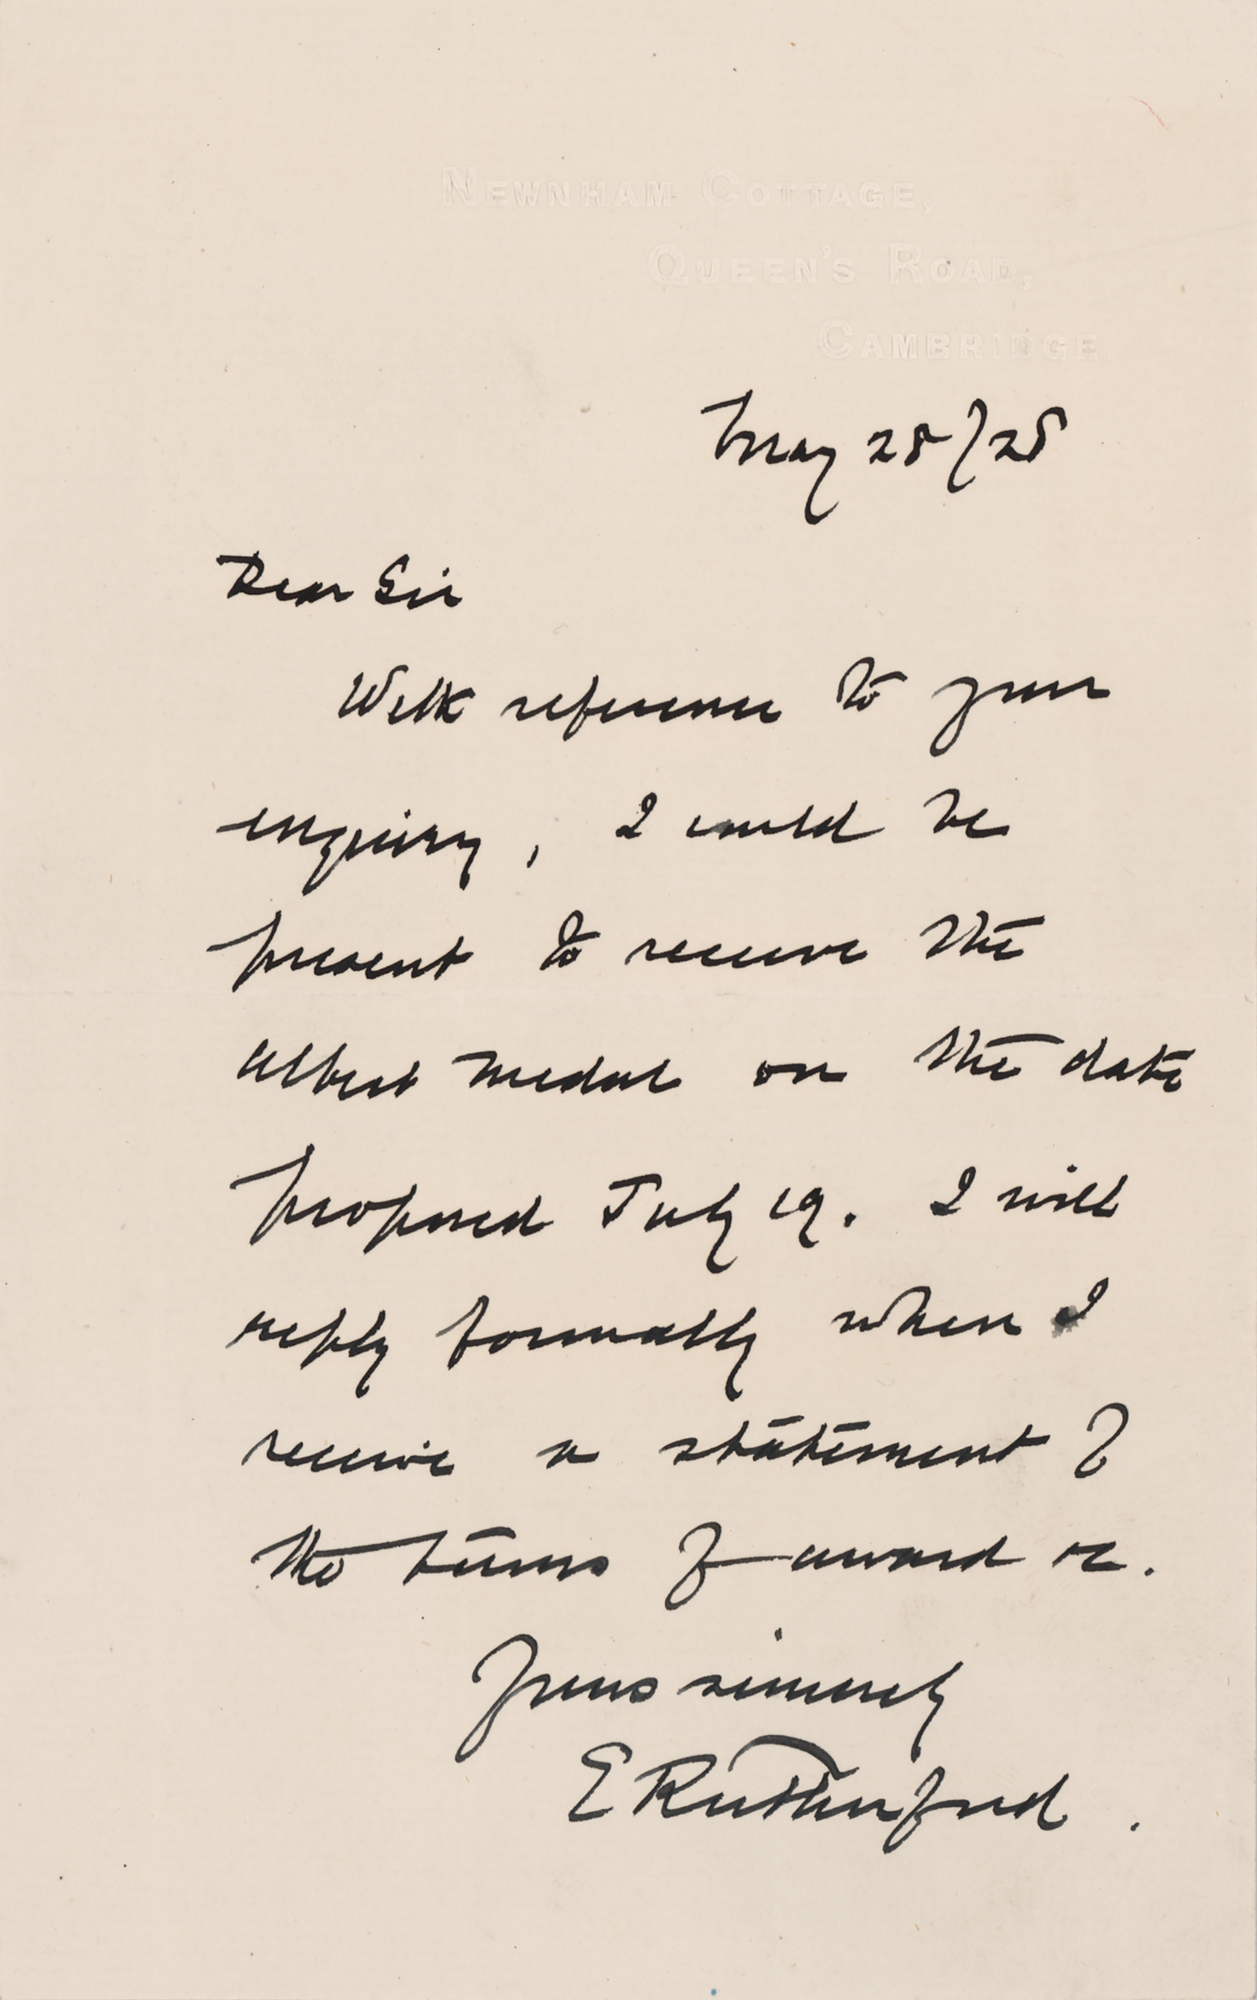 NEWNHAM COTTAGE,
QUEEN'S ROAD,
CAMBRIDGE.
May 28/28
Dear Sir
With reference to your
enquiry, I could be
present to receive the
Albert Medal on the date
proposed July 19. I will
reply formally when I
receive a statement of
the terms of award &c.
Yours sincerely
E Rutherford.